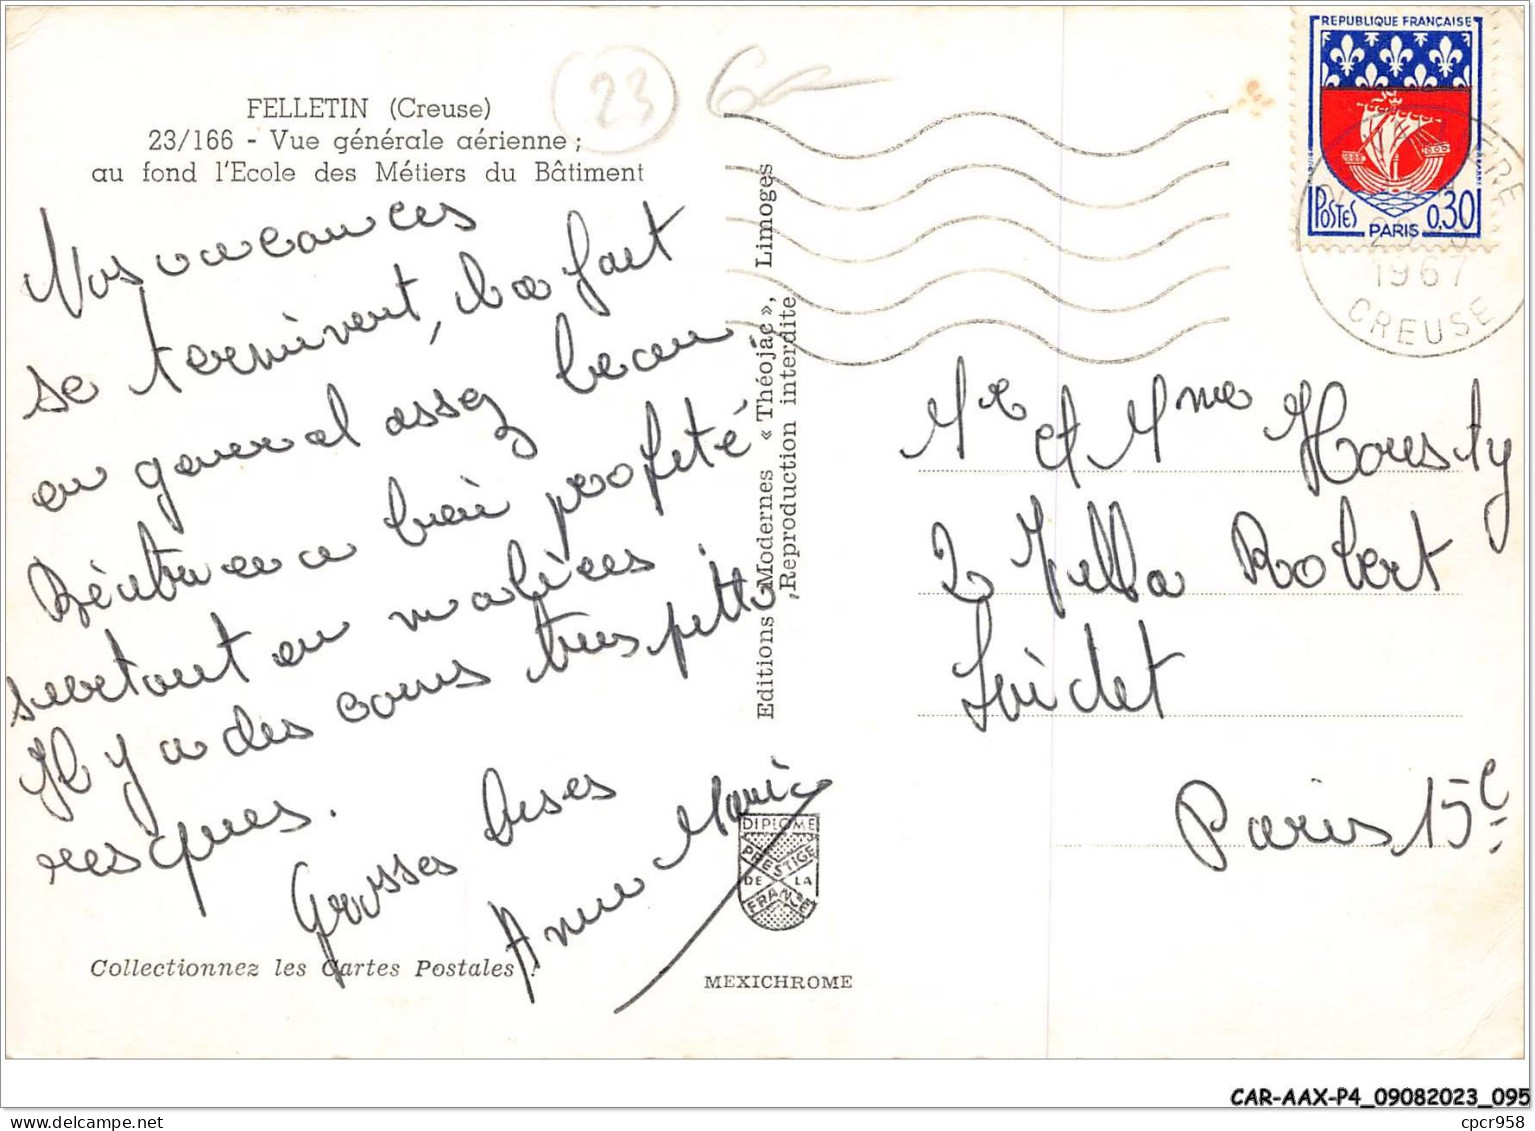 FELLETIN (Creuse)
23/166 - Vue générale aérienne ;
au fond l'Ecole des Métiers du Bâtiment
23
Nos vacances
se terminent, il a fait
en general assez beau,
Béatrice a bien profité
surtout en
Il y a des coins très pitto
resques.
Grosses bises
Anne Marie
Collectionnez les Cartes Postales !
Editions Modernes « Théojac », Limoges
Reproduction interdite
DIPLOME
PRESTIGE
DE LA
FRANCE
MEXICHROME
REPUBLIQUE FRANÇAISE
POSTES
PARIS
0,30
1967
CREUSE
Mr et Mme Housty
2 Villa Robert
Lindet
Paris 15e
CAR-AAX-P4_09082023_095
www.delcampe.net
cpcr958